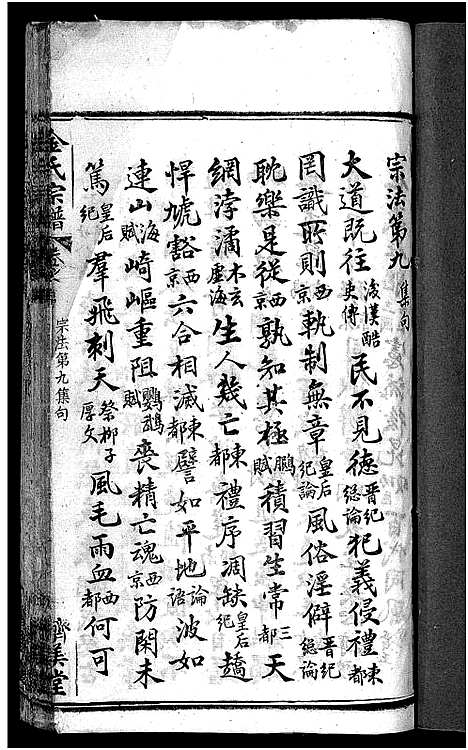 宗法第九 集句
大道既往後漢酷吏傳民不見德晉紀總論犯義侵禮東
罔識所則西京執制無章皇后紀論風俗淫僻晉紀總論
耽樂是從西京孰知其極鵩賦積習生常三都天
網浡潏木玄虛海生人幾亡東都禮序凋缺皇后紀譑
悍虓豁西京六合相滅東都譬如平地論語波如
連山海賦崎嶇重阻鸚鵡賦喪精亡魂西京防閑未
篤皇后紀羣飛刺天祭柳子厚文風毛雨血西都何可
金氏宗譜
宗法第九集句
齊美堂